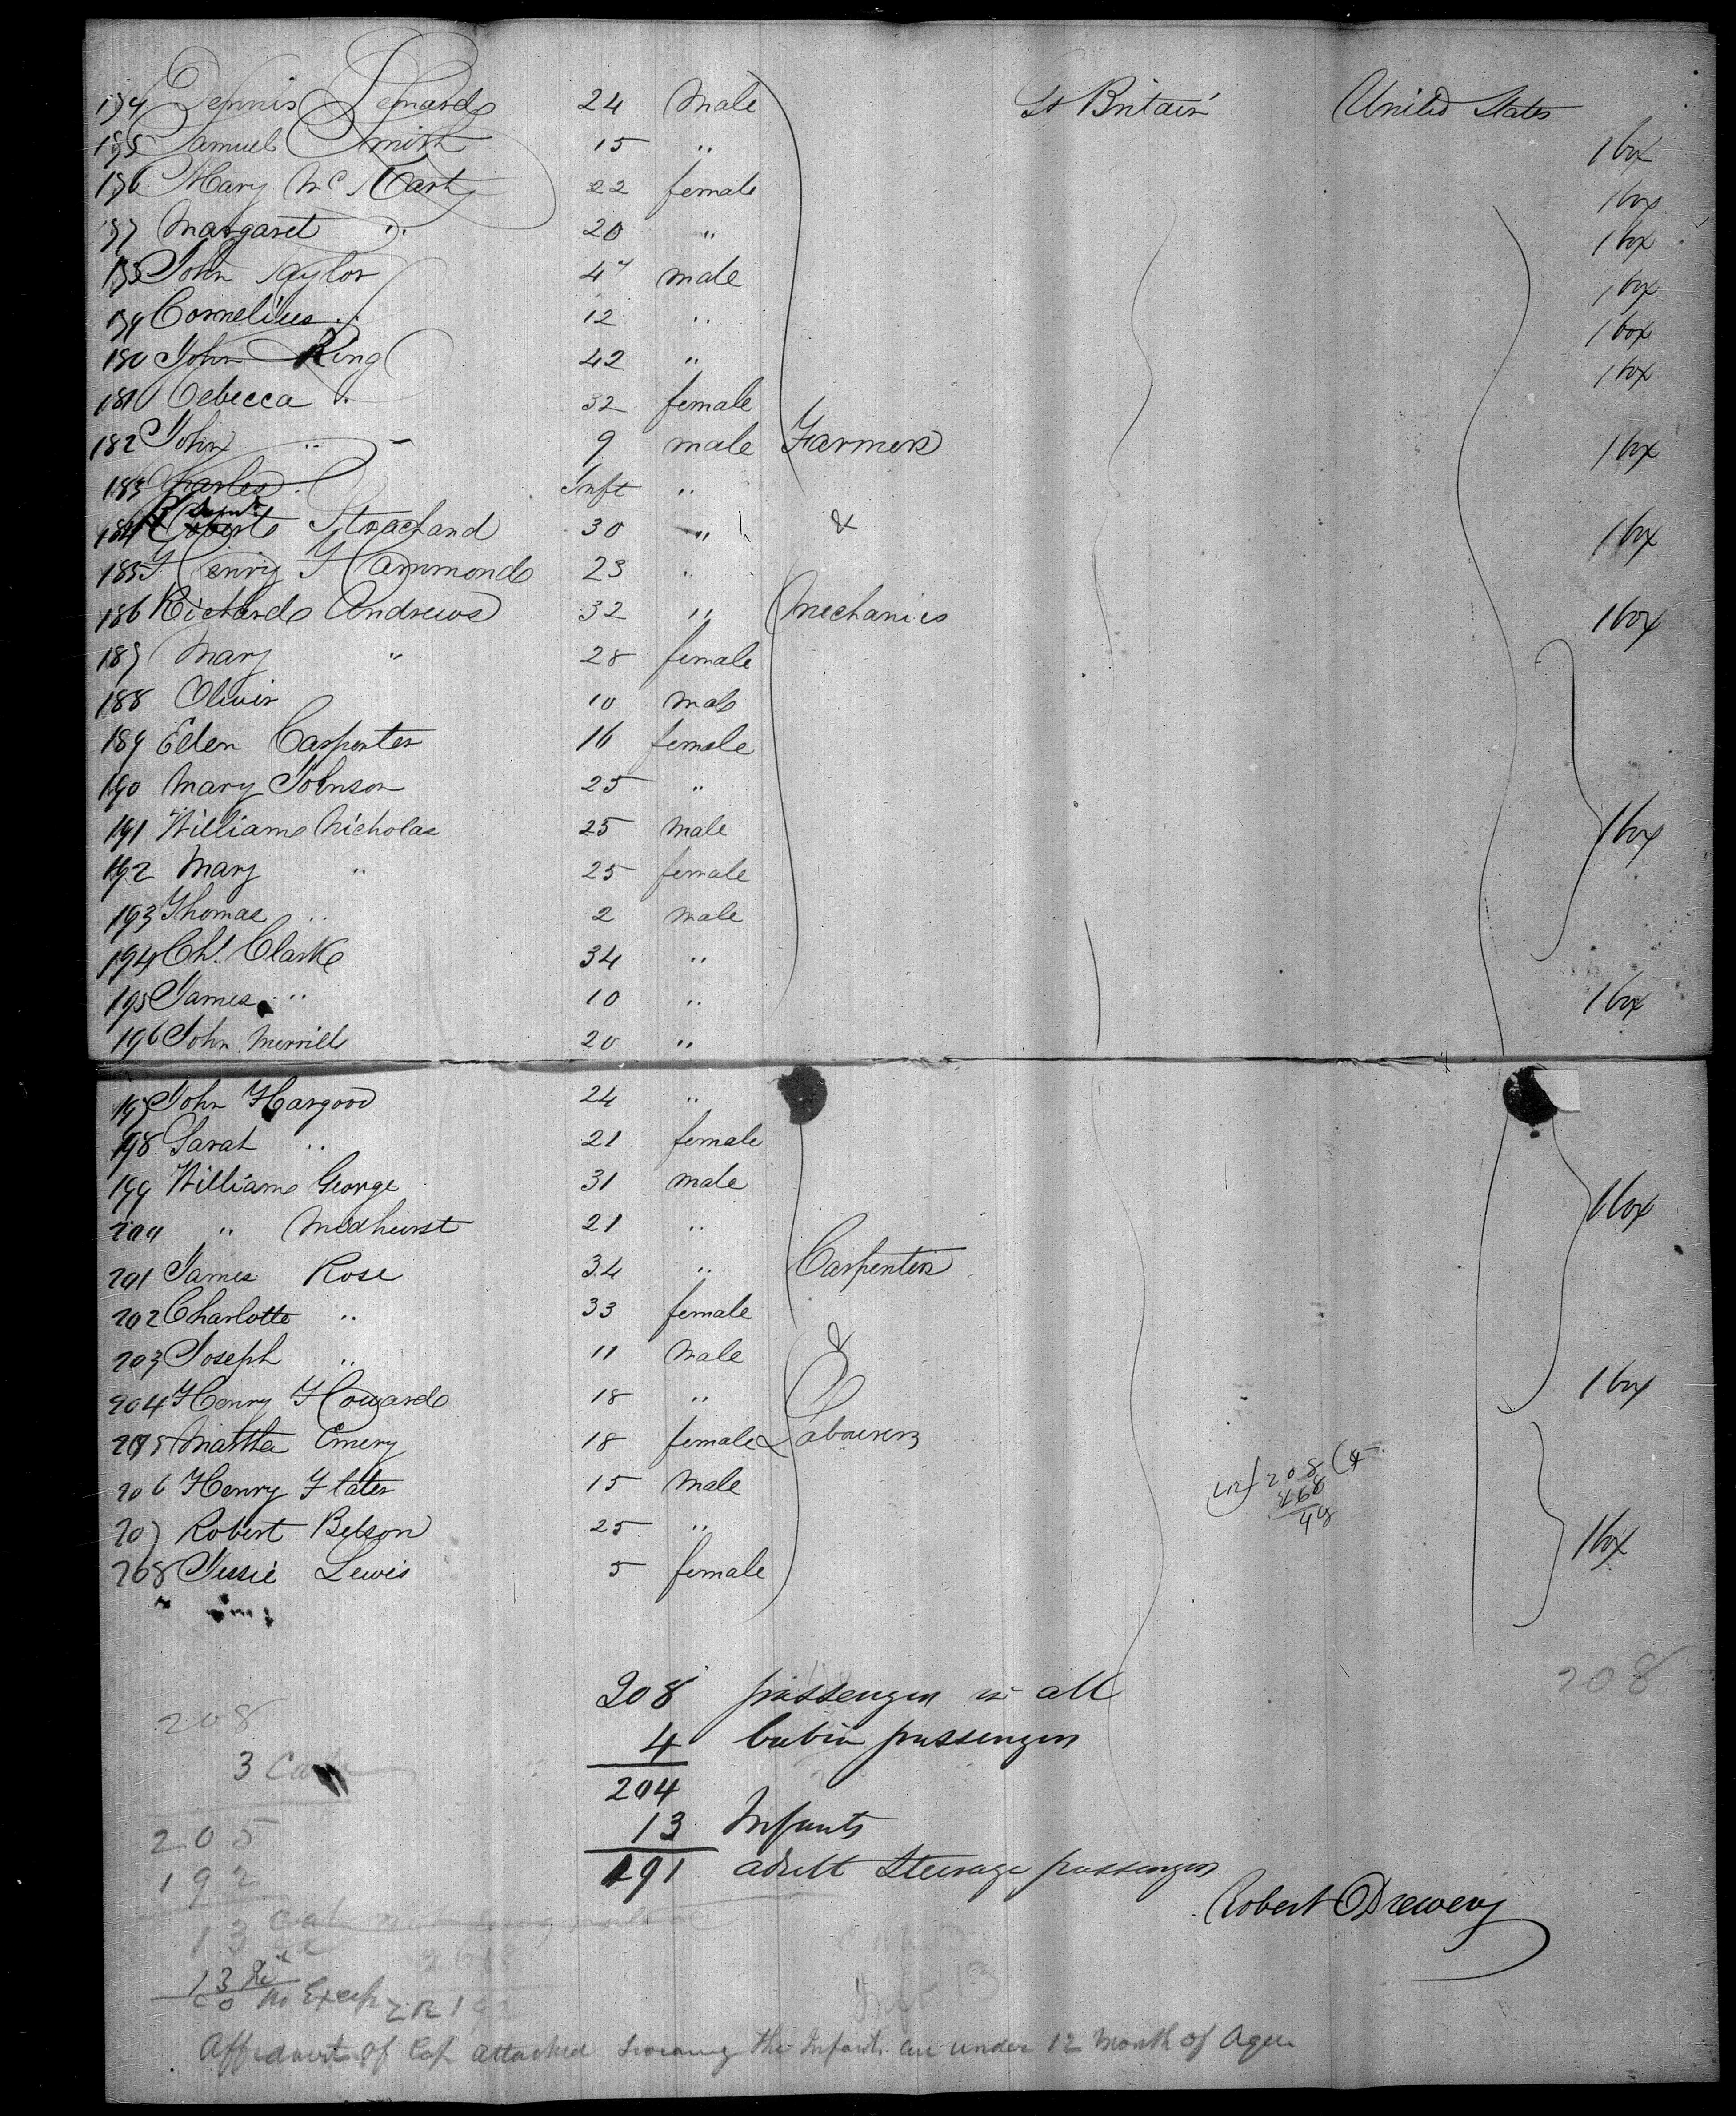 174 Dennis Lenard 24 Male Gt Britain United States
175 Samuel Smith 15 " 1 box
176 Mary McKarty 22 female 1 box
177 Margaret " 20 " 1 box
178 John Taylor 47 male 1 box
179 Cornelius " 12 " 1 box
180 John King 42 " 1 box
181 Rebecca " 32 female
182 John " 9 male Farmers 1 box
183 Charles " Inft "
184 Strachand 30 " & 1 box
185 Henry Hammond 23 "
186 Richard Andrews 32 " Mechanics 1 box
187 Mary " 28 female
188 Oliver 10 male
189 Eden Carpenter 16 female
190 Mary Johnson 25 "
191 William Nicholas 25 Male 1 box
192 Mary " 25 female
193 Thomas " 2 male
194 Chs. Clark 34 "
195 James " 10 " 1 box
196 John Merrill 20 "
197 John Hargood 24 "
198 Sarah " 21 female
199 William George 31 male 1 box
200 " Medhurst 21 "
201 James Rose 34 " Carpenters
202 Charlotte " 33 female
203 Joseph " 11 Male &
204 Henry Howard 18 " 1 box
205 Martha Emery 18 female Labourers
206 Henry Flater 15 Male
207 Robert Belson 25 " 1 box
208 Jessie Lewis 5 female
208
208 passengers in all
4 Cabin passengers
204
13 Infants
191 adult Steerage passengers
Robert Drewery
208
3 Cab
205
192
13
Inft 13
Affidavit of Cap attached swearing the Infants are under 12 month of Ages